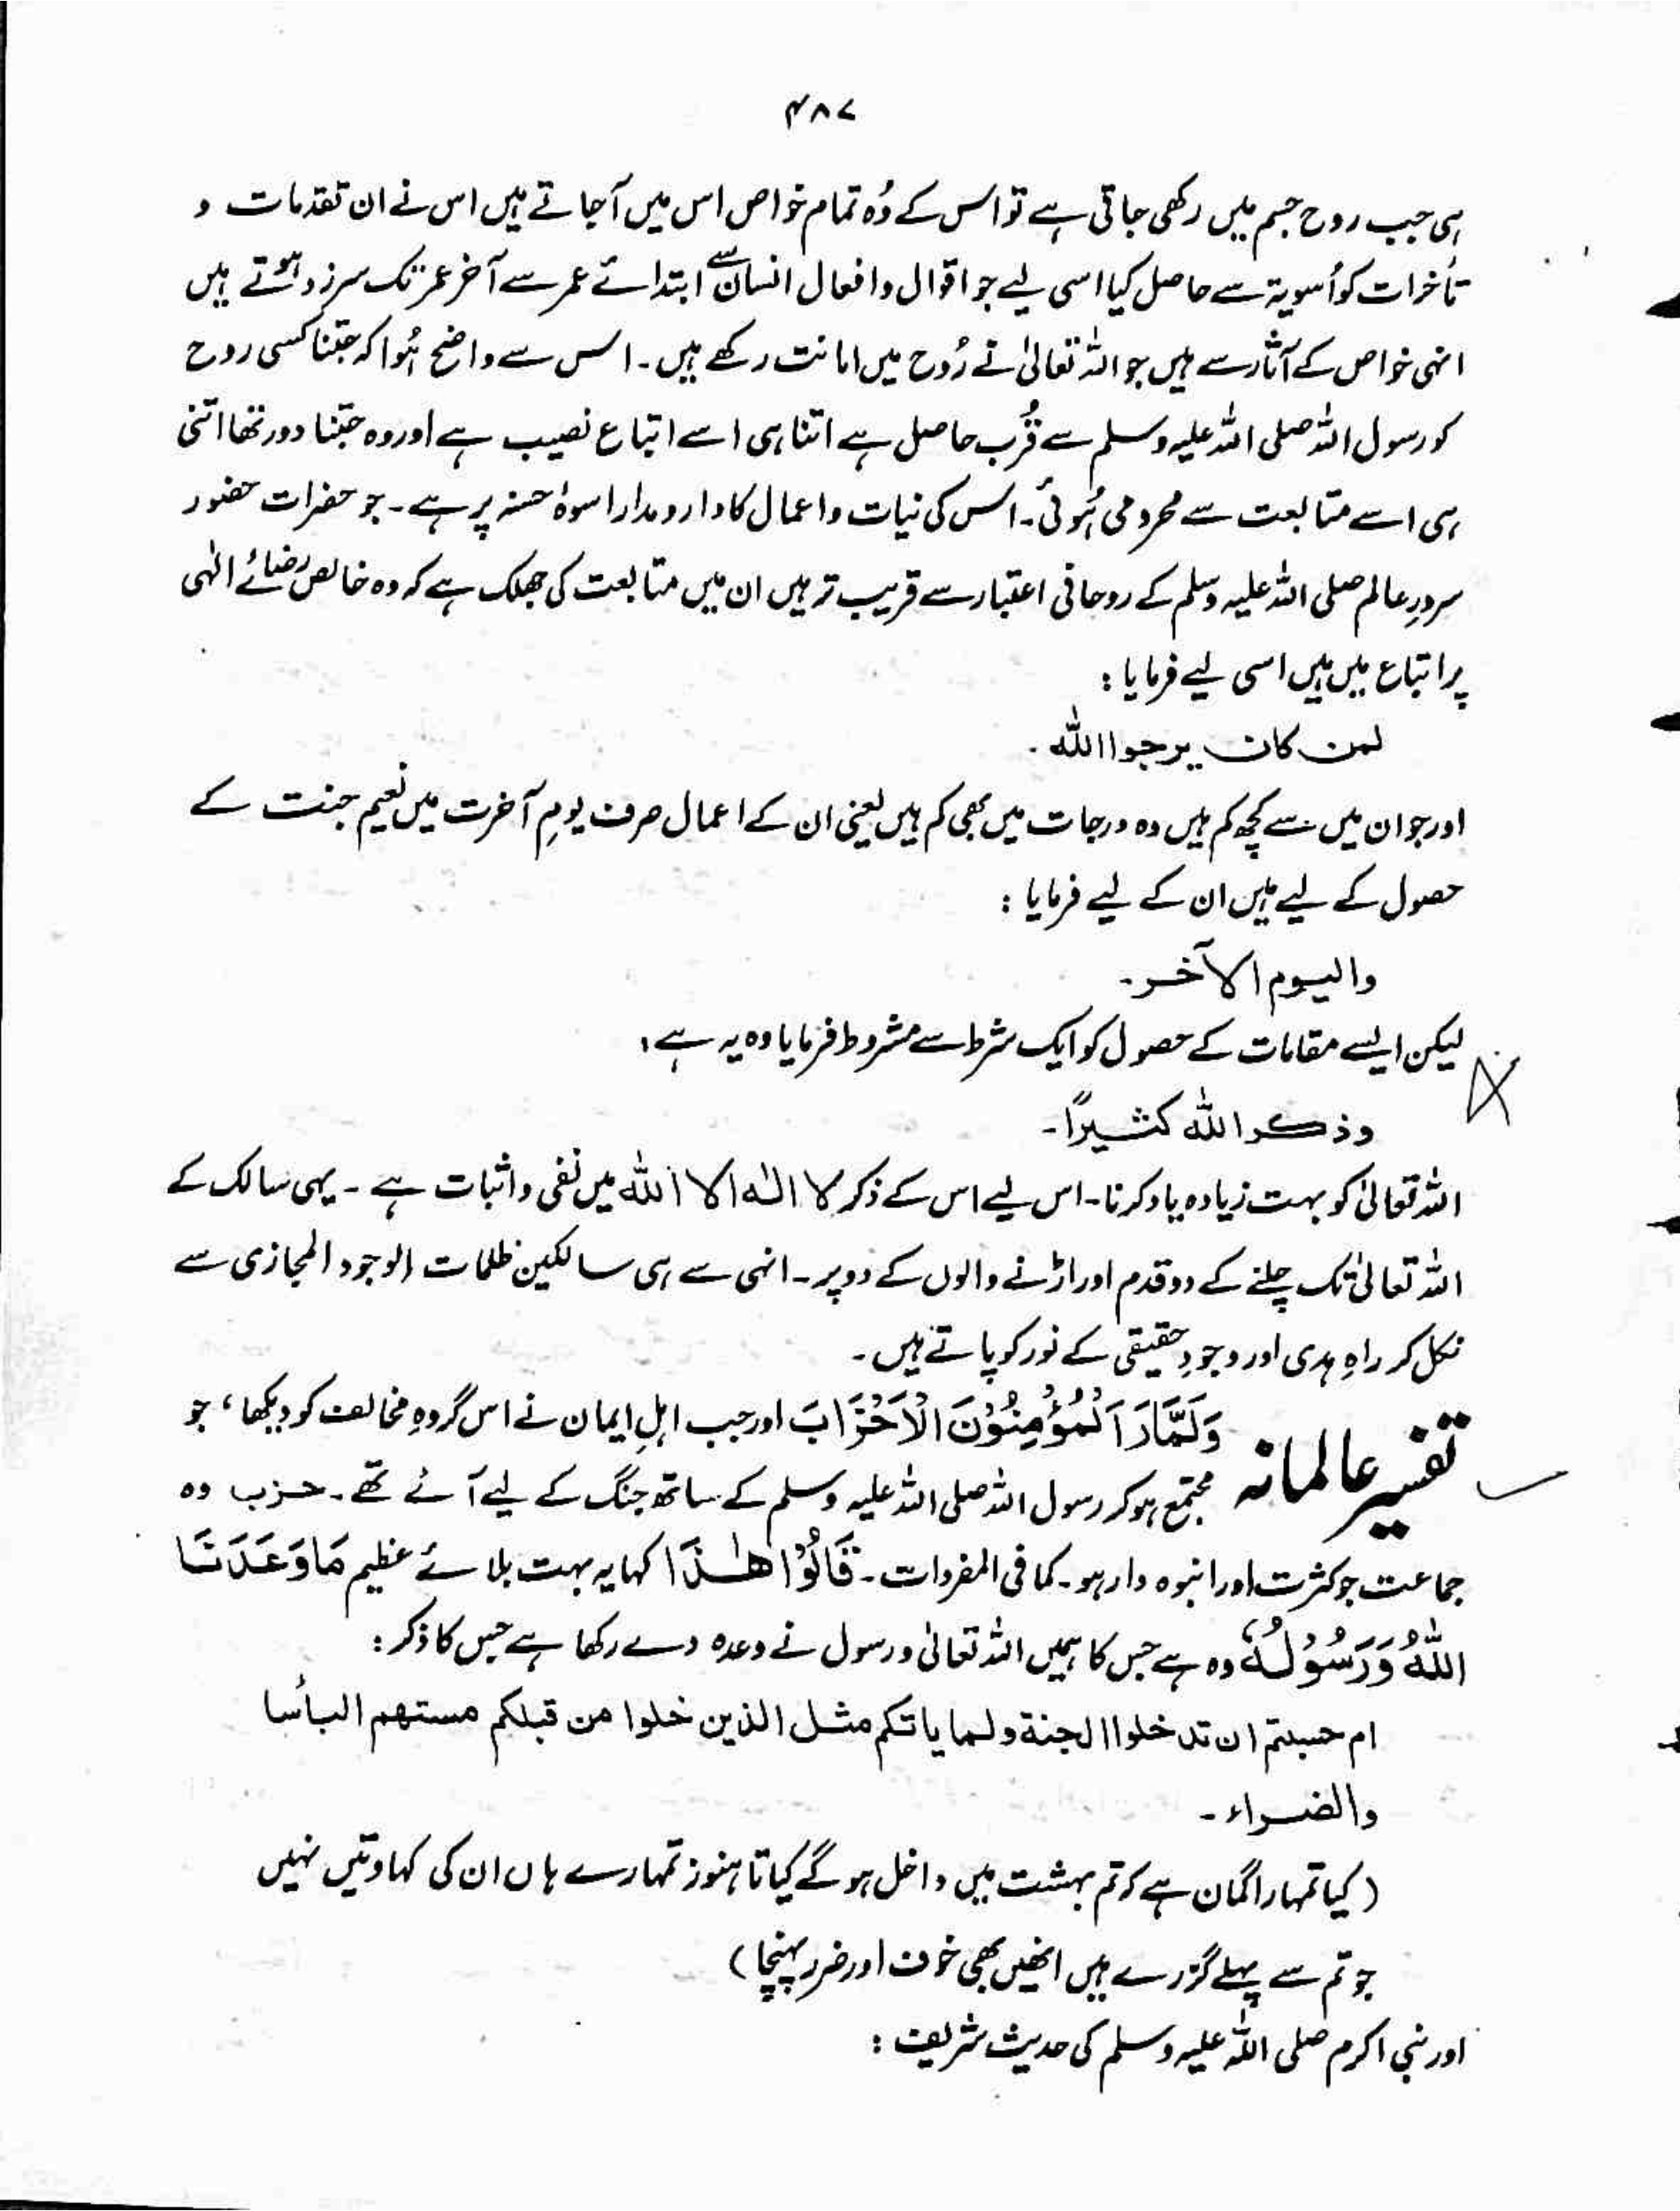 ۴۸۷
ہی جب روح جسم میں رکھی جاتی ہے تو اس کے وُہ تمام خواص اس میں آجاتے ہیں اس نے ان تقدمات و
تأخرات کو اُسویۃ سے حاصل کیا اسی لیے جو اقوال و افعال انسان سے ابتدائے عمر سے آخر عمر تک سرزد ہوتے ہیں
انہی خواص کے آثار سے ہیں جو اللہ تعالیٰ نے رُوح میں امانت رکھے ہیں۔ اس سے واضح ہُوا کہ جتنا کسی روح
کو رسول اللہ صلی اللہ علیہ وسلم سے قُرب حاصل ہے اتنا ہی اسے اتباع نصیب ہے اور وہ جتنا دور تھا اتنی
ہی اسے متابعت سے محرومی ہُوئی۔ اس کی نیات و اعمال کا دارومدار اسوۂ حسنہ پر ہے۔ جو حضرات حضور
سرورِ عالم صلی اللہ علیہ وسلم کے روحانی اعتبار سے قریب تر ہیں ان میں متابعت کی جھلک ہے کہ وہ خالص رضائے الٰہی
پر اتباع میں ہیں اسی لیے فرمایا :
لمن کان یرجوا اللہ ۔
اور جو ان میں سے کچھ کم ہیں وہ درجات میں بھی کم ہیں یعنی ان کے اعمال صرف یومِ آخرت میں نعیم جنت کے
حصول کے لیے ہیں ان کے لیے فرمایا :
والیوم الآخر۔
لیکن ایسے مقامات کے حصول کو ایک شرط سے مشروط فرمایا وہ یہ ہے :
وذکر اللہ کثیرًا۔
اللہ تعالیٰ کو بہت زیادہ یاد کرنا۔ اس لیے اس کے ذکر لا الٰہ الا اللہ میں نفی و اثبات ہے ۔ یہی سالک کے
اللہ تعالیٰ تک چلنے کے دو قدم اور اڑنے والوں کے دو پر۔ انہی سے ہی سالکین ظلمات الوجود المجازی سے
نکل کر راہِ ہدی اور وجودِ حقیقی کے نور کو پاتے ہیں۔
تفسیر عالمانہ وَلَمَّا رَاَ الْمُؤْمِنُوْنَ الْاَحْزَابَ اور جب اہلِ ایمان نے اس گروہِ مخالف کو دیکھا ، جو
مجتمع ہو کر رسول اللہ صلی اللہ علیہ وسلم کے ساتھ جنگ کے لیے آئے تھے۔ حزب وہ
جماعت جو کثرت اور انبوہ دار ہو۔ کما فی المفردات۔ قَالُوْا ھٰذَا کہا یہ بہت بلائے عظیم مَا وَعَدَنَا
اللہُ وَرَسُوْلُہٗ وہ ہے جس کا ہمیں اللہ تعالیٰ و رسول نے وعدہ دے رکھا ہے جس کا ذکر :
ام حسبتم ان تدخلوا الجنة ولما یاتکم مثل الذین خلوا من قبلکم مستھم البأسا
والضراء ۔
( کیا تمہارا گمان ہے کہ تم بہشت میں داخل ہو گے کیا تاہنوز تمہارے ہاں ان کی کہاوتیں نہیں
جو تم سے پہلے گزرے ہیں انھیں بھی خوف اور ضرر پہنچا )
اور نبی اکرم صلی اللہ علیہ وسلم کی حدیث شریف :